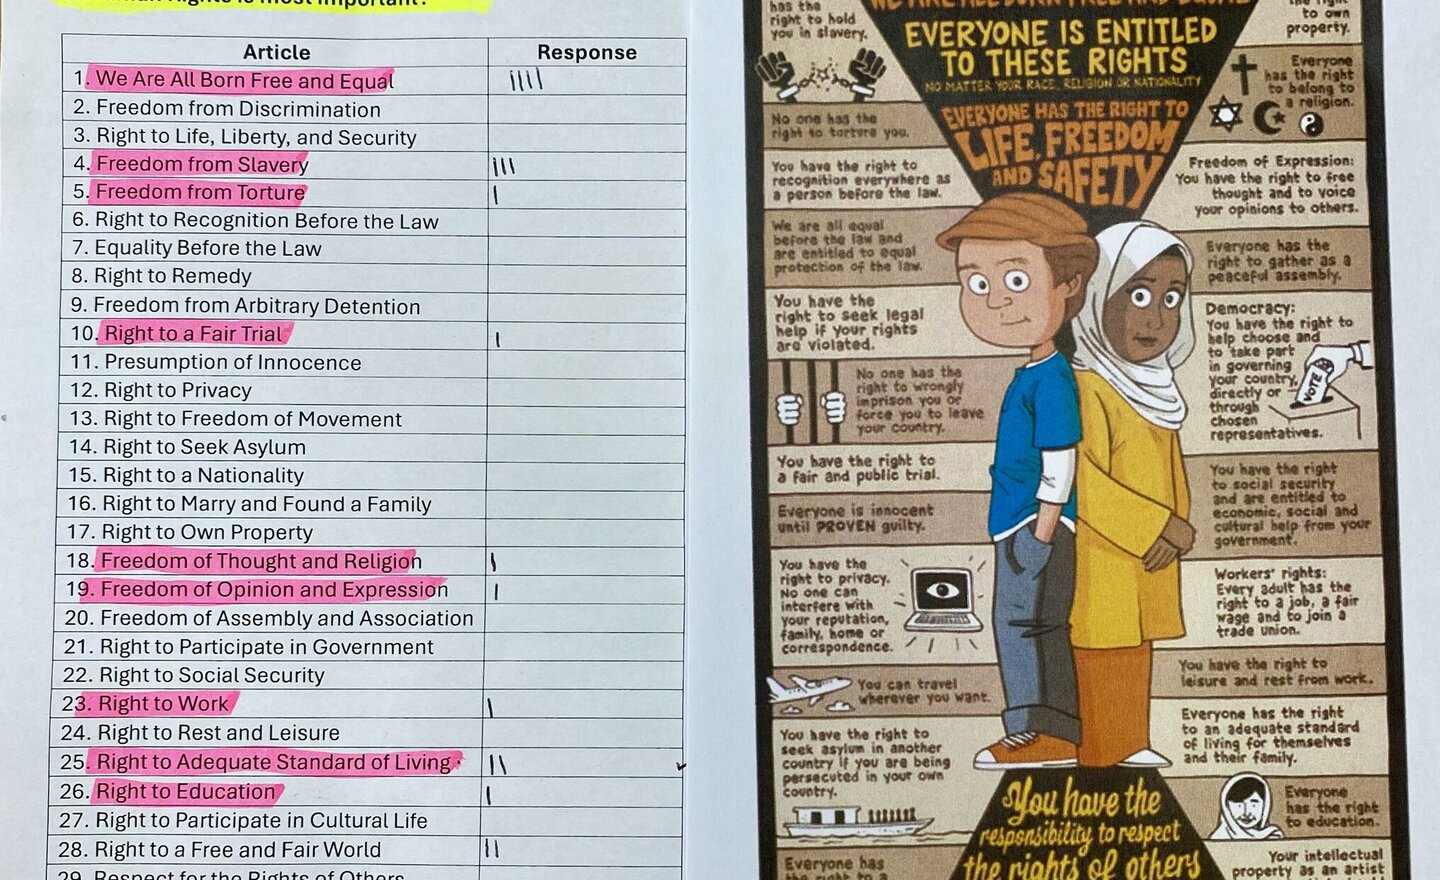 Rights is most important?
Article Response
1. We Are All Born Free and Equal
2. Freedom from Discrimination
3. Right to Life, Liberty, and Security
4. Freedom from Slavery
5. Freedom from Torture
6. Right to Recognition Before the Law
7. Equality Before the Law
8. Right to Remedy
9. Freedom from Arbitrary Detention
10. Right to a Fair Trial
11. Presumption of Innocence
12. Right to Privacy
13. Right to Freedom of Movement
14. Right to Seek Asylum
15. Right to a Nationality
16. Right to Marry and Found a Family
17. Right to Own Property
18. Freedom of Thought and Religion
19. Freedom of Opinion and Expression
20. Freedom of Assembly and Association
21. Right to Participate in Government
22. Right to Social Security
23. Right to Work
24. Right to Rest and Leisure
25. Right to Adequate Standard of Living
26. Right to Education
27. Right to Participate in Cultural Life
28. Right to a Free and Fair World
29. Respect for the Rights of Others
WE ARE ALL BORN FREE AND EQUAL
EVERYONE IS ENTITLED
TO THESE RIGHTS
NO MATTER YOUR RACE, RELIGION OR NATIONALITY
EVERYONE HAS THE RIGHT TO
LIFE, FREEDOM
AND SAFETY
has the
right to hold
you in slavery.
No one has the
right to torture you.
You have the right to
recognition everywhere as
a person before the law.
We are all equal
before the law and
are entitled to equal
protection of the law.
You have the
right to seek legal
help if your rights
are violated.
No one has the
right to wrongly
imprison you or
force you to leave
your country.
You have the right to
a fair and public trial.
Everyone is innocent
until PROVEN guilty.
You have the
right to privacy.
No one can
interfere with
your reputation,
family, home or
correspondence.
You can travel
wherever you want.
You have the right to
seek asylum in another
country if you are being
persecuted in your own
country.
Everyone has
the right to a
the right
to own
property.
Everyone
has the right
to belong to
a religion.
Freedom of Expression:
You have the right to free
thought and to voice
your opinions to others.
Everyone has the
right to gather as a
peaceful assembly.
Democracy:
You have the right to
help choose and
to take part
in governing
your country,
directly or
through
chosen
representatives.
VOTE
You have the right
to social security
and are entitled to
economic, social and
cultural help from your
government.
Workers' rights:
Every adult has the
right to a job, a fair
wage and to join a
trade union.
You have the right to
leisure and rest from work.
Everyone has the right
to an adequate standard
of living for themselves
and their family.
Everyone
has the right
to education.
Your intellectual
property as an artist
You have the
responsibility to respect
the rights of others